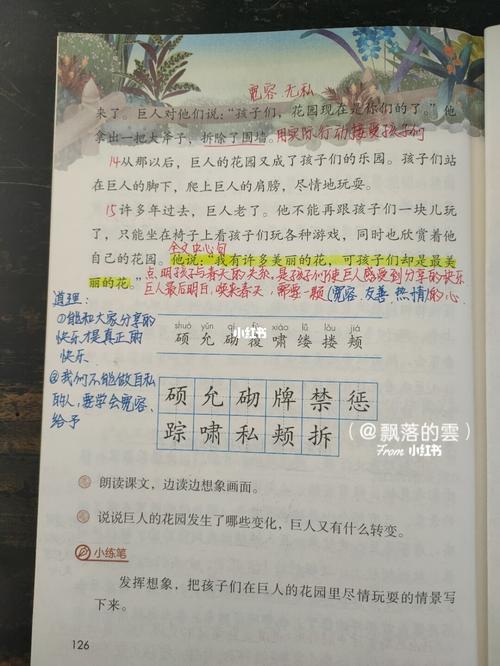 宽容.无私
来了。巨人对他们说:“孩子们,花园现在是你们的了。”他
拿出一把大斧子,拆除了围墙。用实际行动接受孩子们
14从那以后,巨人的花园又成了孩子们的乐园。孩子们站
在巨人的脚下,爬上巨人的肩膀,尽情地玩耍。
15许多年过去,巨人老了。他不能再跟孩子们一块儿玩
了,只能坐在椅子上看孩子们玩各种游戏,同时也欣赏着他
自己的花园。他说:“我有许多美丽的花,可孩子们却是最美
全文中心句
丽的花。”
点明孩子与春天的关系,是孩子们使巨人感受到分享的快乐
巨人最后明白,唤来春天,需要一颗(宽容.友善.热情)的心
道理:
①能和大家分享的
快乐才是真正的
快乐
②我们不能做自私
的人,要学会宽容、
给予
shuò yǔn qì fù xiào lǚ lōu jiá
硕 允 砌 覆 啸 缕 搂 颊
小红书
硕 允 砌 牌 禁 惩
踪 啸 私 颊 拆
(@飘落的雲)
From 小红书
朗读课文,边读边想象画面。
说说巨人的花园发生了哪些变化,巨人又有什么转变。
小练笔
发挥想象,把孩子们在巨人的花园里尽情玩耍的情景写
下来。
126